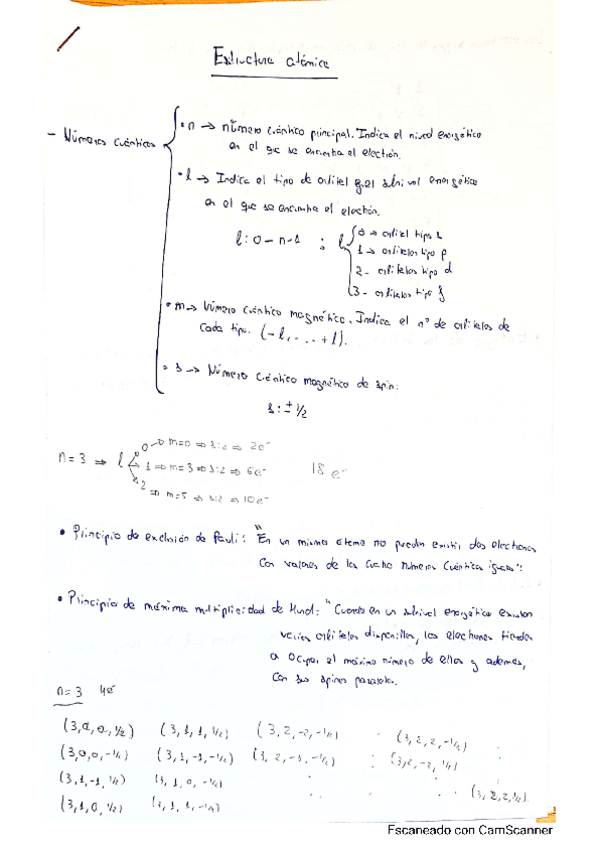 Estructura atómica
- Números cuánticos
• n → número cuántico principal. Indica el nivel energético
en el que se encuentra el electrón.
• l → Indica el tipo de orbital y el subnivel energético
en el que se encuentra el electrón.
l: 0 - n-1 ; l
0 → orbital tipo s
1 → orbitales tipo p
2 - orbitales tipo d
3 - orbitales tipo f
• m → Número cuántico magnético. Indica el nº de orbitales de
cada tipo. (-l, ... +l).
• s → Número cuántico magnético de spin:
s: ± 1/2
n = 3 ⇒ l
0 → m=0 ⇒ s:2 ⇒ 2e⁻
1 ⇒ m=3 ⇒ s:2 ⇒ 6e⁻
2 ⇒ m=5 ⇒ s:2 ⇒ 10e⁻
18 e⁻
• Principio de exclusión de Pauli: "En un mismo átomo no pueden existir dos electrones
con valores de los cuatro números cuánticos iguales".
• Principio de máxima multiplicidad de Hund: "Cuando en un subnivel energético existen
varios orbitales disponibles, los electrones tienden
a ocupar el máximo número de ellos y además,
con sus spines paralelos.
n = 3
(3,0,0,1/2) (3,1,1,1/2) (3,2,-2,-1/2) (3,2,2,-1/2)
(3,0,0,-1/2) (3,1,-1,-1/2) (3,2,-1,-1/2) (3,2,-2,1/2)
(3,1,-1,1/2) (3,1,0,-1/2) (3,2,2,1/2)
(3,1,0,1/2) (3,1,1,-1/2)
Escaneado con CamScanner